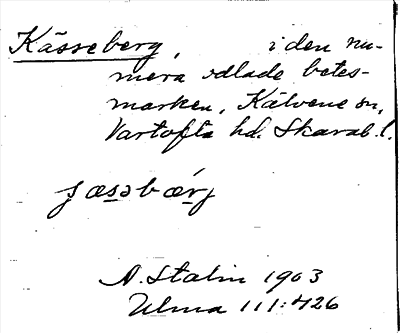 Kässeberg, i den nu-
mera odlade betes-
marken, Kälvene sn,
Vartofta hd. Skarab. l.
A. Stalin 1903
Ulma 111:426